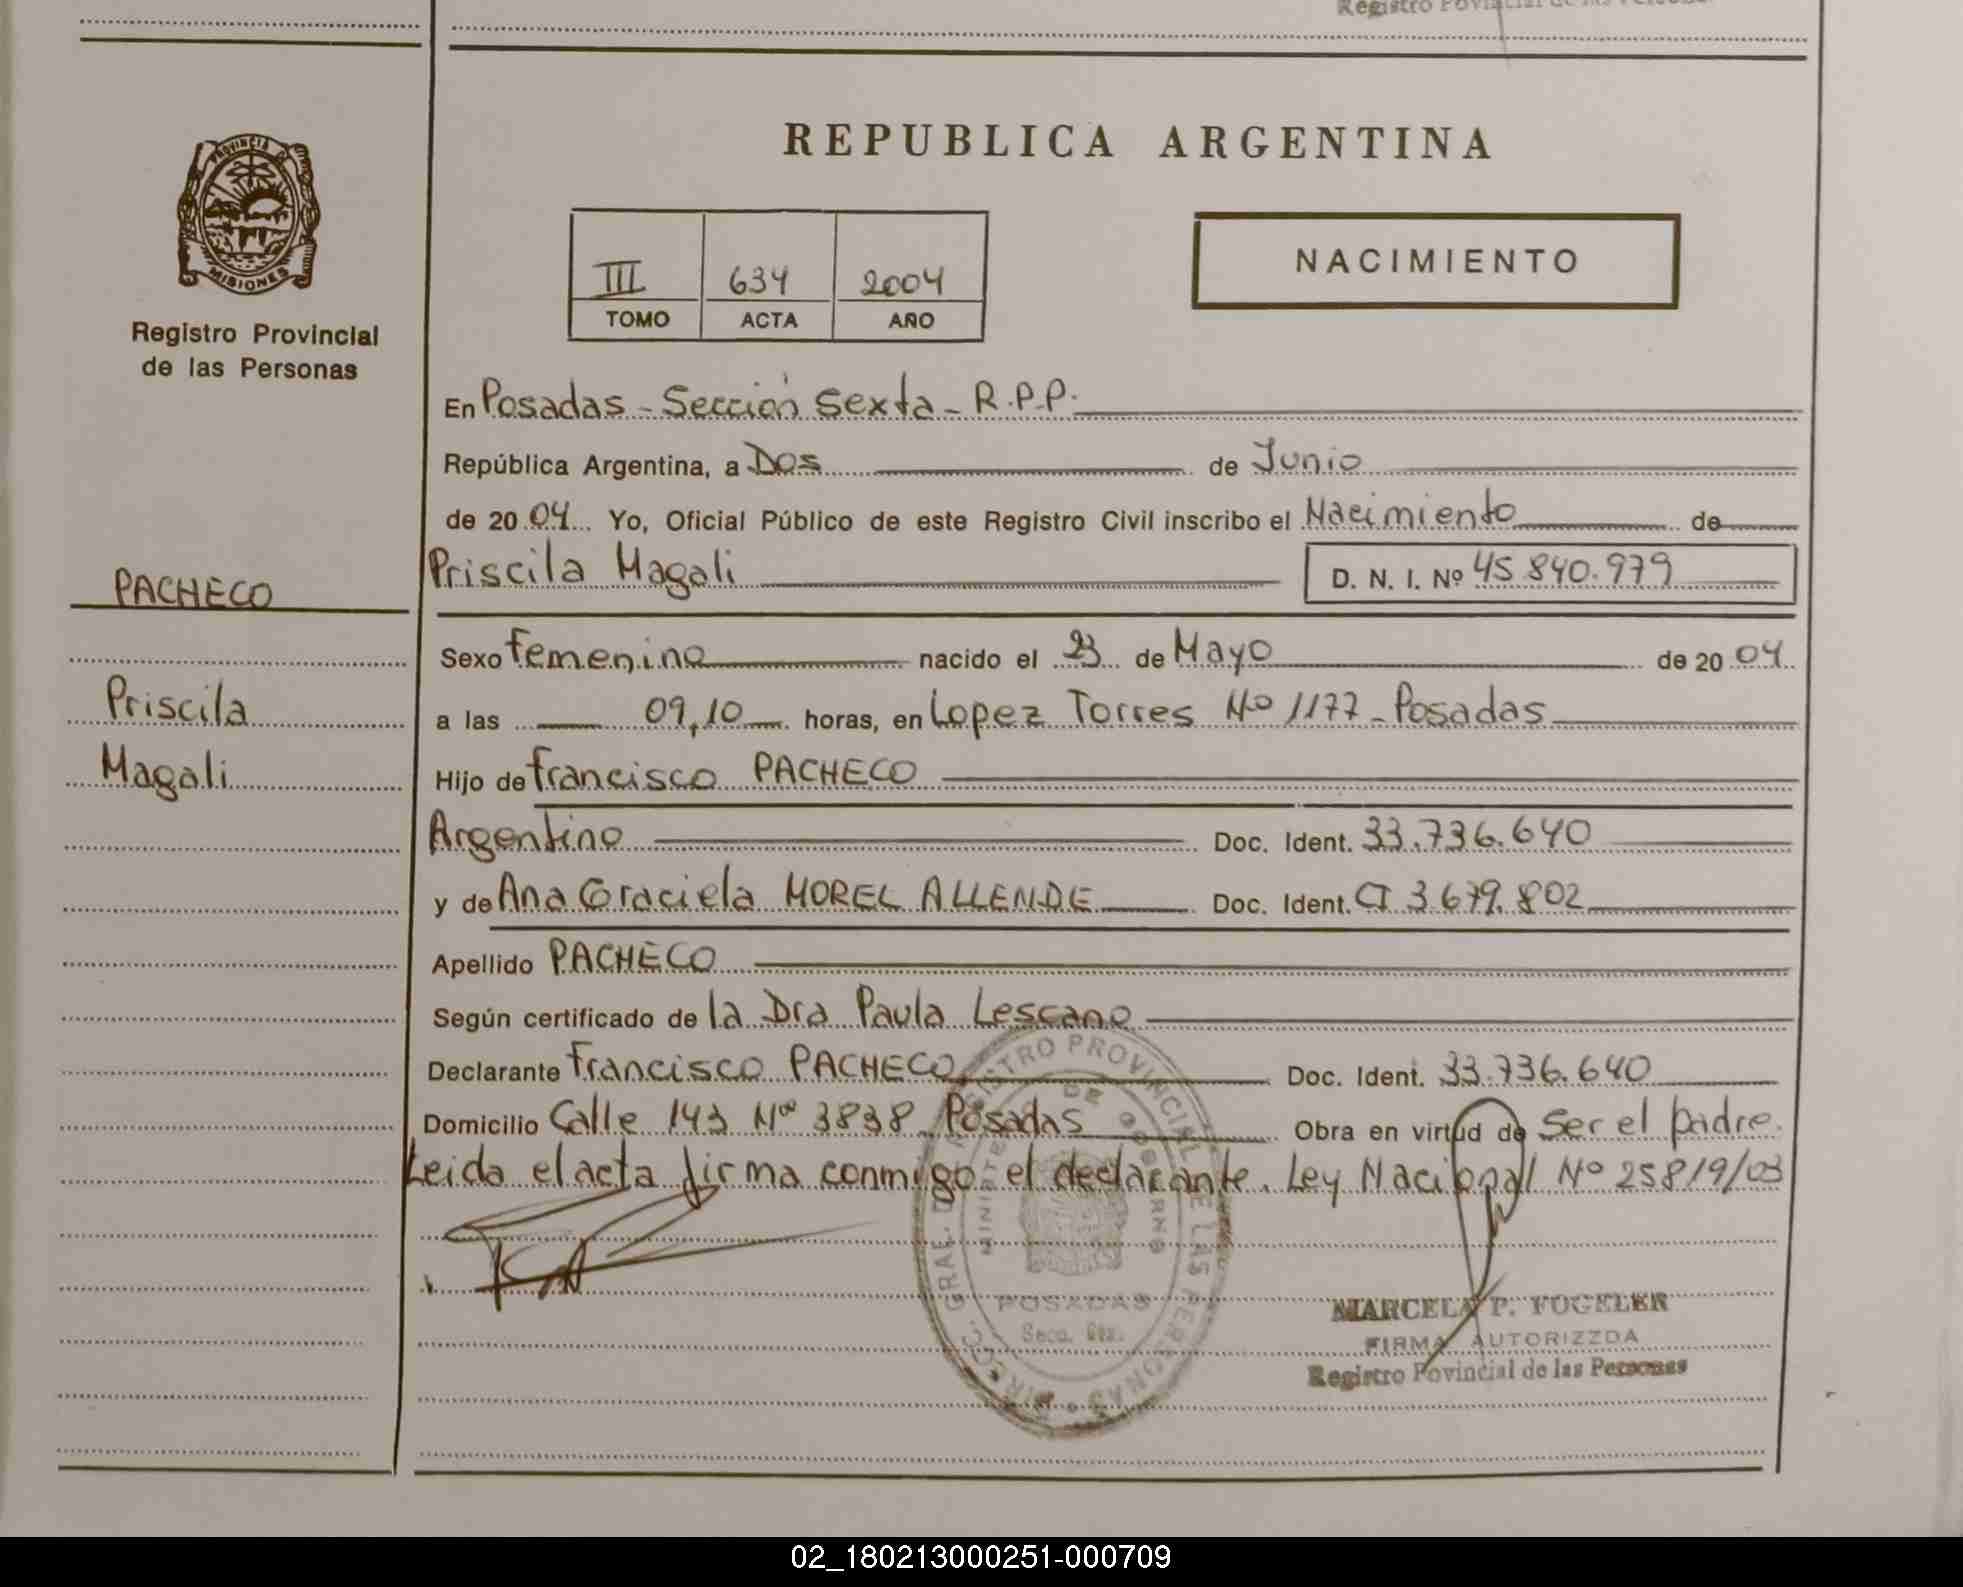 Registro Povincial de las Personas
REPUBLICA ARGENTINA
PROVINCIA DE
MISIONES
Registro Provincial
de las Personas
III 634 2004
TOMO ACTA AÑO
NACIMIENTO
En Posadas - Sección Sexta - R.P.P.
República Argentina, a Dos de Junio
de 20 04 Yo, Oficial Público de este Registro Civil inscribo el Nacimiento de
PACHECO
Priscila Magali D. N. I. Nº 45.840.979
Sexo Femenino nacido el 23 de Mayo de 20 04
Priscila
a las 09,10 horas, en Lopez Torres Nº 1177 - Posadas
Magali
Hijo de Francisco PACHECO
Argentino Doc. Ident. 33.736.640
y de Ana Graciela MOREL ALLENDE Doc. Ident. CI 3.679.802
Apellido PACHECO
Según certificado de la Dra Paula Lescano
Declarante Francisco PACHECO Doc. Ident. 33.736.640
Domicilio Calle 143 Nº 3838 Posadas Obra en virtud de ser el padre.
Leida el acta firma conmigo el declarante. Ley Nacional Nº 25819/03
DIRECC. GRAL. DE REGISTRO PROVINCIAL DE LAS PERSONAS
MINISTERIO DE GOBIERNO
POSADAS
Secc. 6ta.
MARCELA P. FOGELER
FIRMA AUTORIZZDA
Registro Povincial de las Personas
02_180213000251-000709